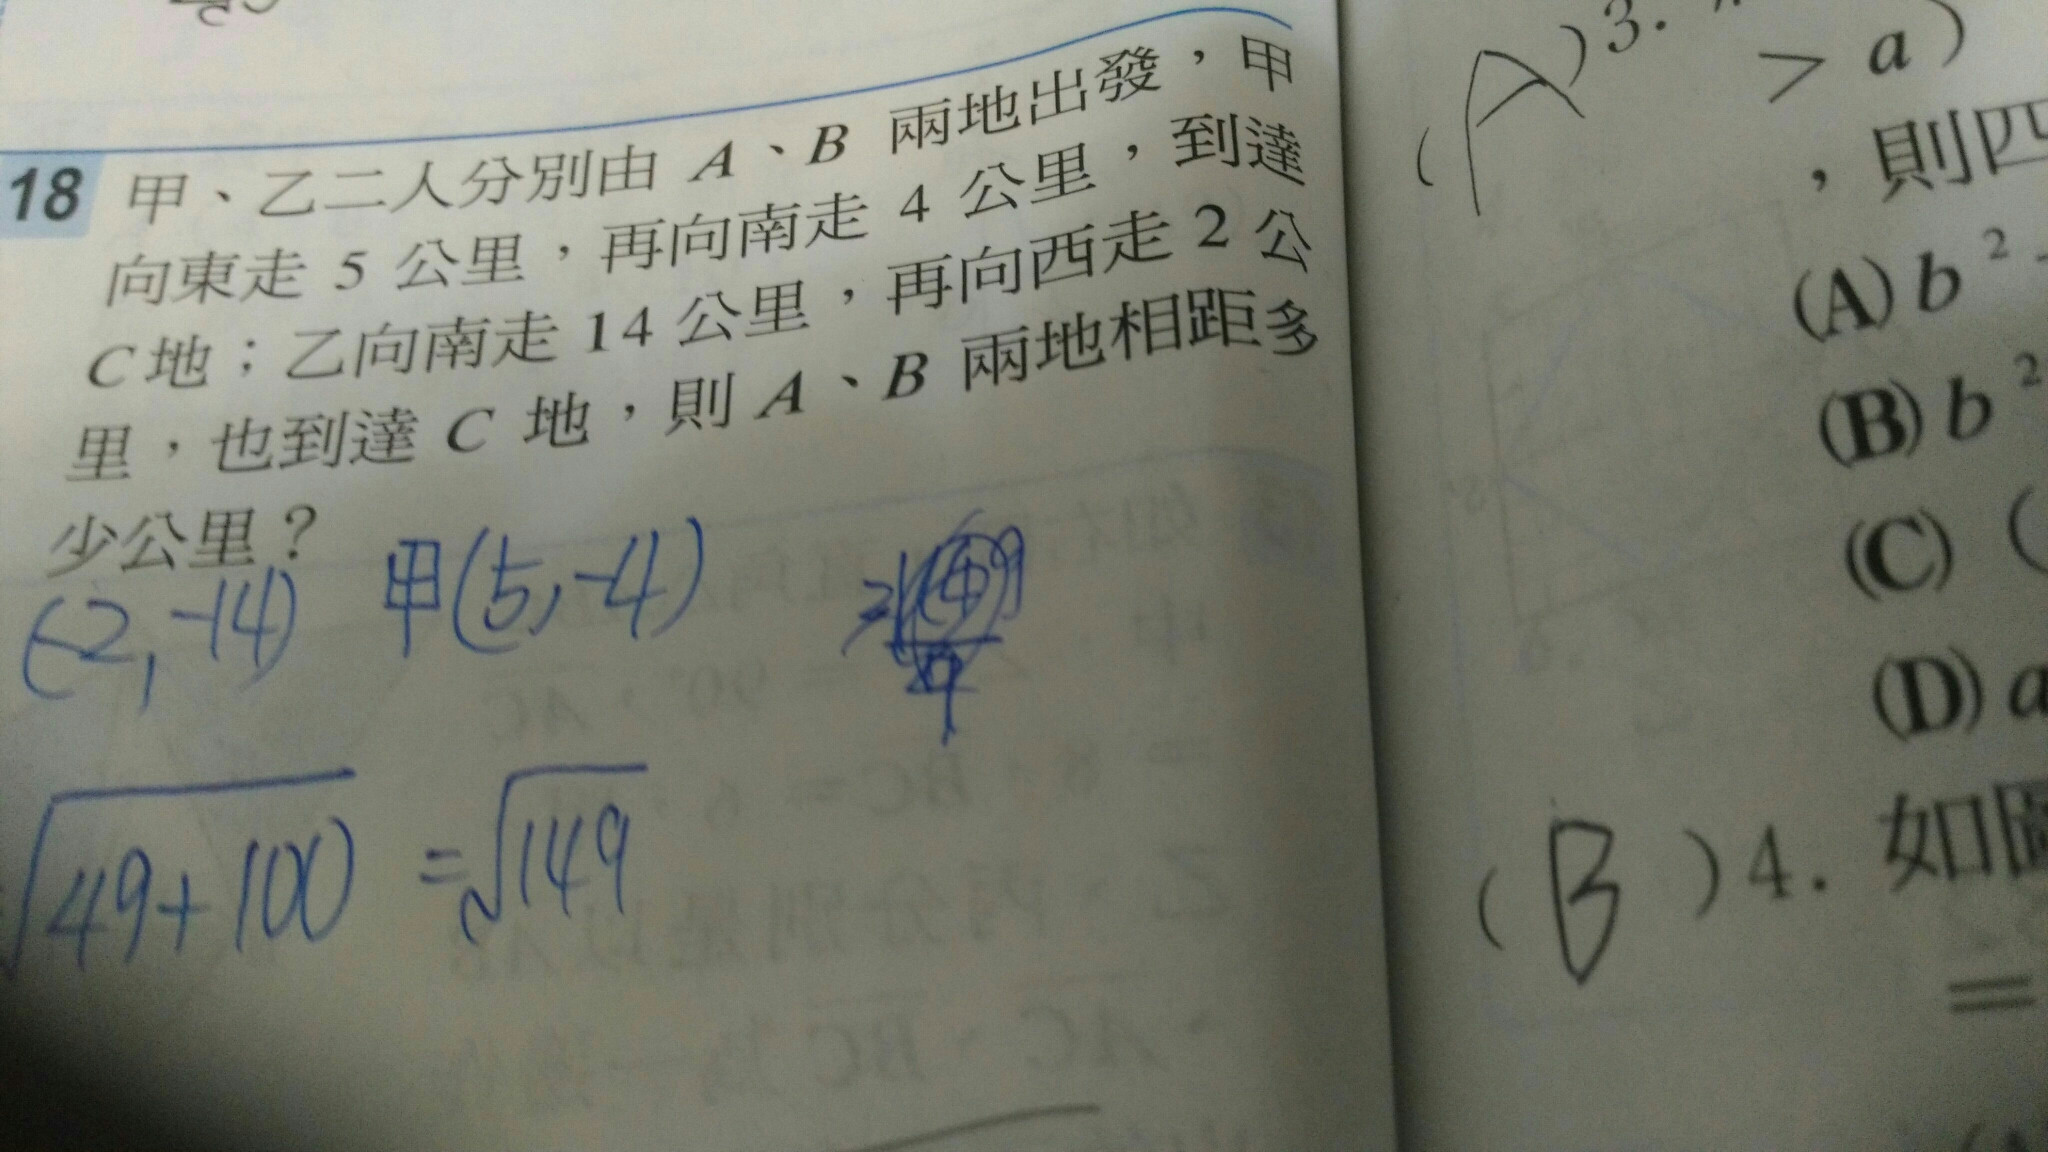 18 甲、乙二人分別由 A、B 兩地出發，甲
向東走 5 公里，再向南走 4 公里，到達
C地；乙向南走 14 公里，再向西走 2 公
里，也到達 C 地，則 A、B 兩地相距多
少公里？
(-2, -14) 甲(5, -4)
√49+100 = √149
(A)3.
> a)
，則四
(A) b²
(B) b²
(C) (
(D) a
(B)4. 如圖
=